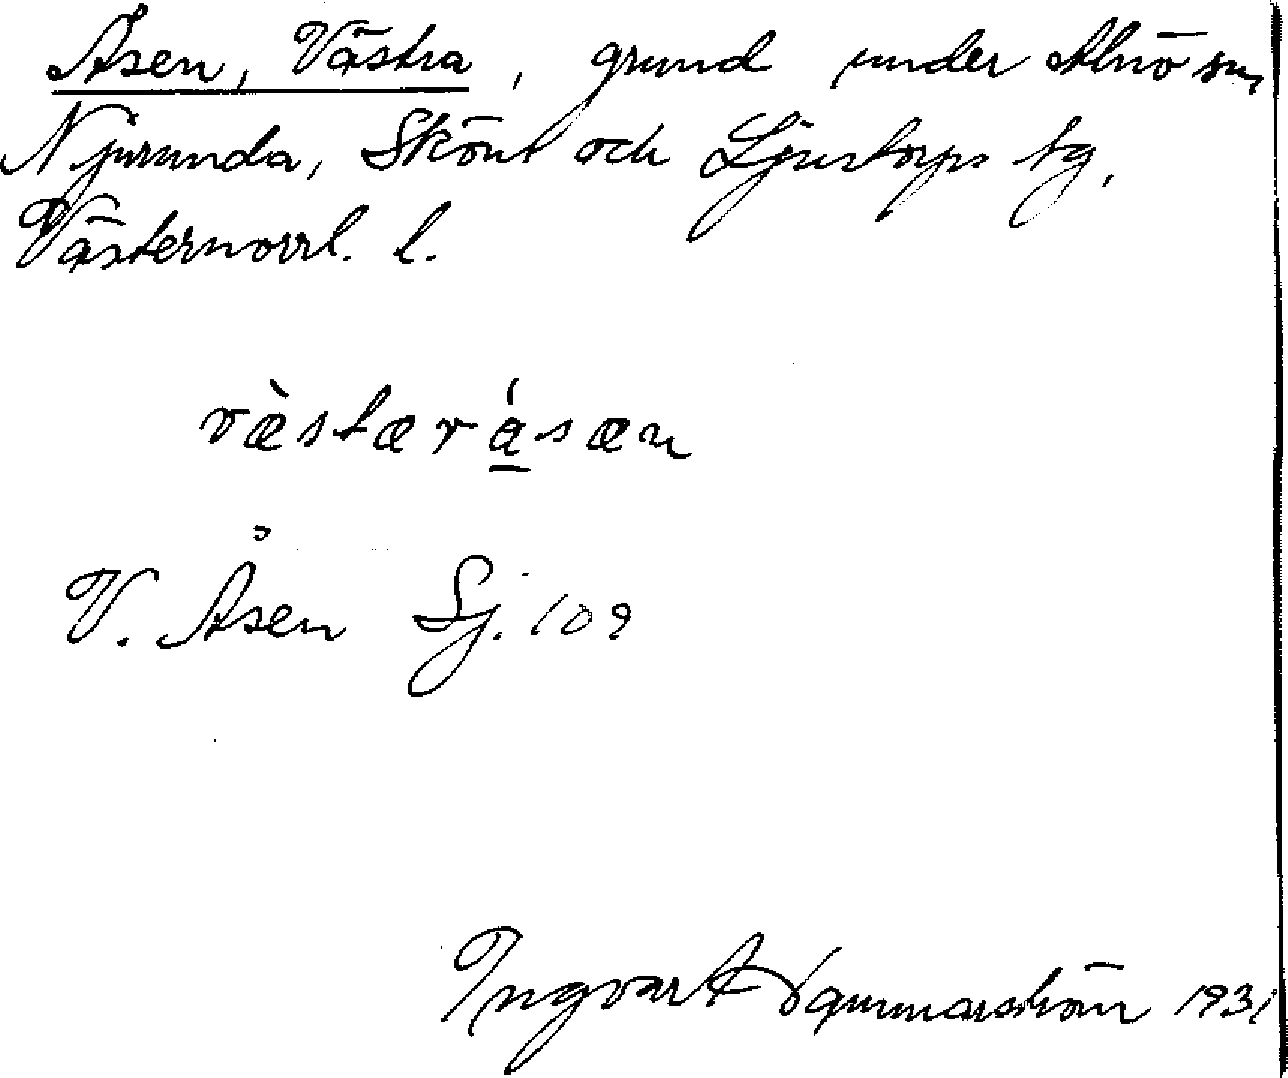 Åsen, Västra, grund under Alnö sn,
Njurunda, Sköns och Ljustorps tg,
Västernorrl. l.
væ̀stærá̱sæn
V. Åsen Sj. 109
Ingvar 1931